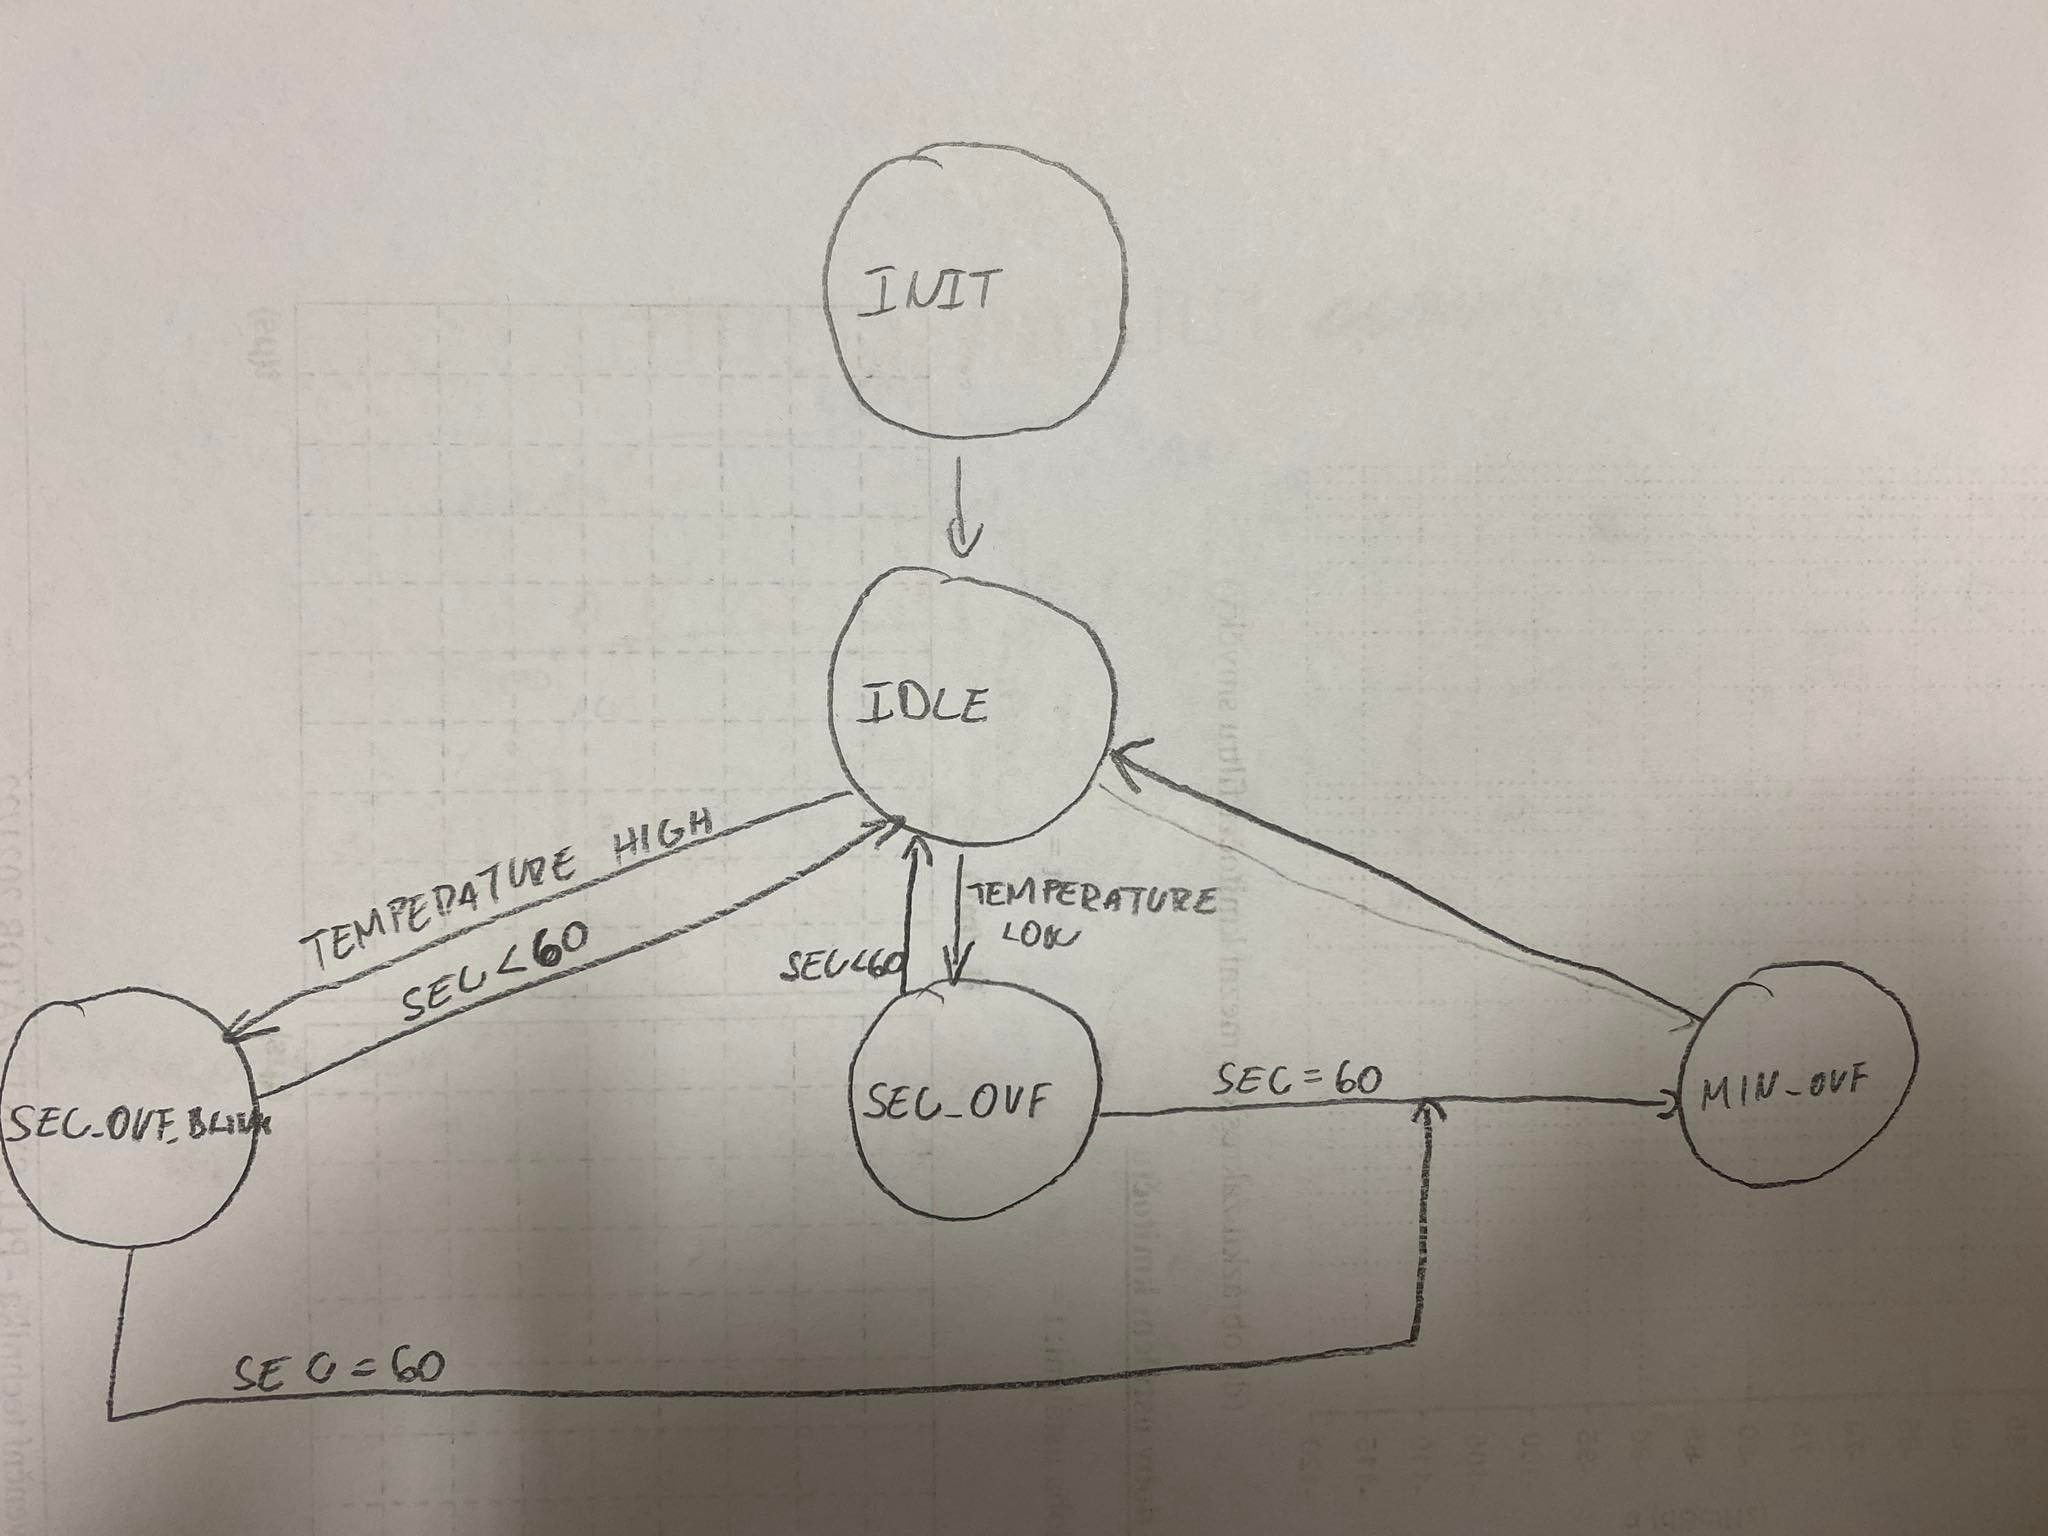 INIT
IDLE
TEMPERATURE HIGH
SEC<60
TEMPERATURE
LOW
SEC<60
SEC_OVF_BLINK
SEC_OVF
SEC=60
MIN_OVF
SEC=60